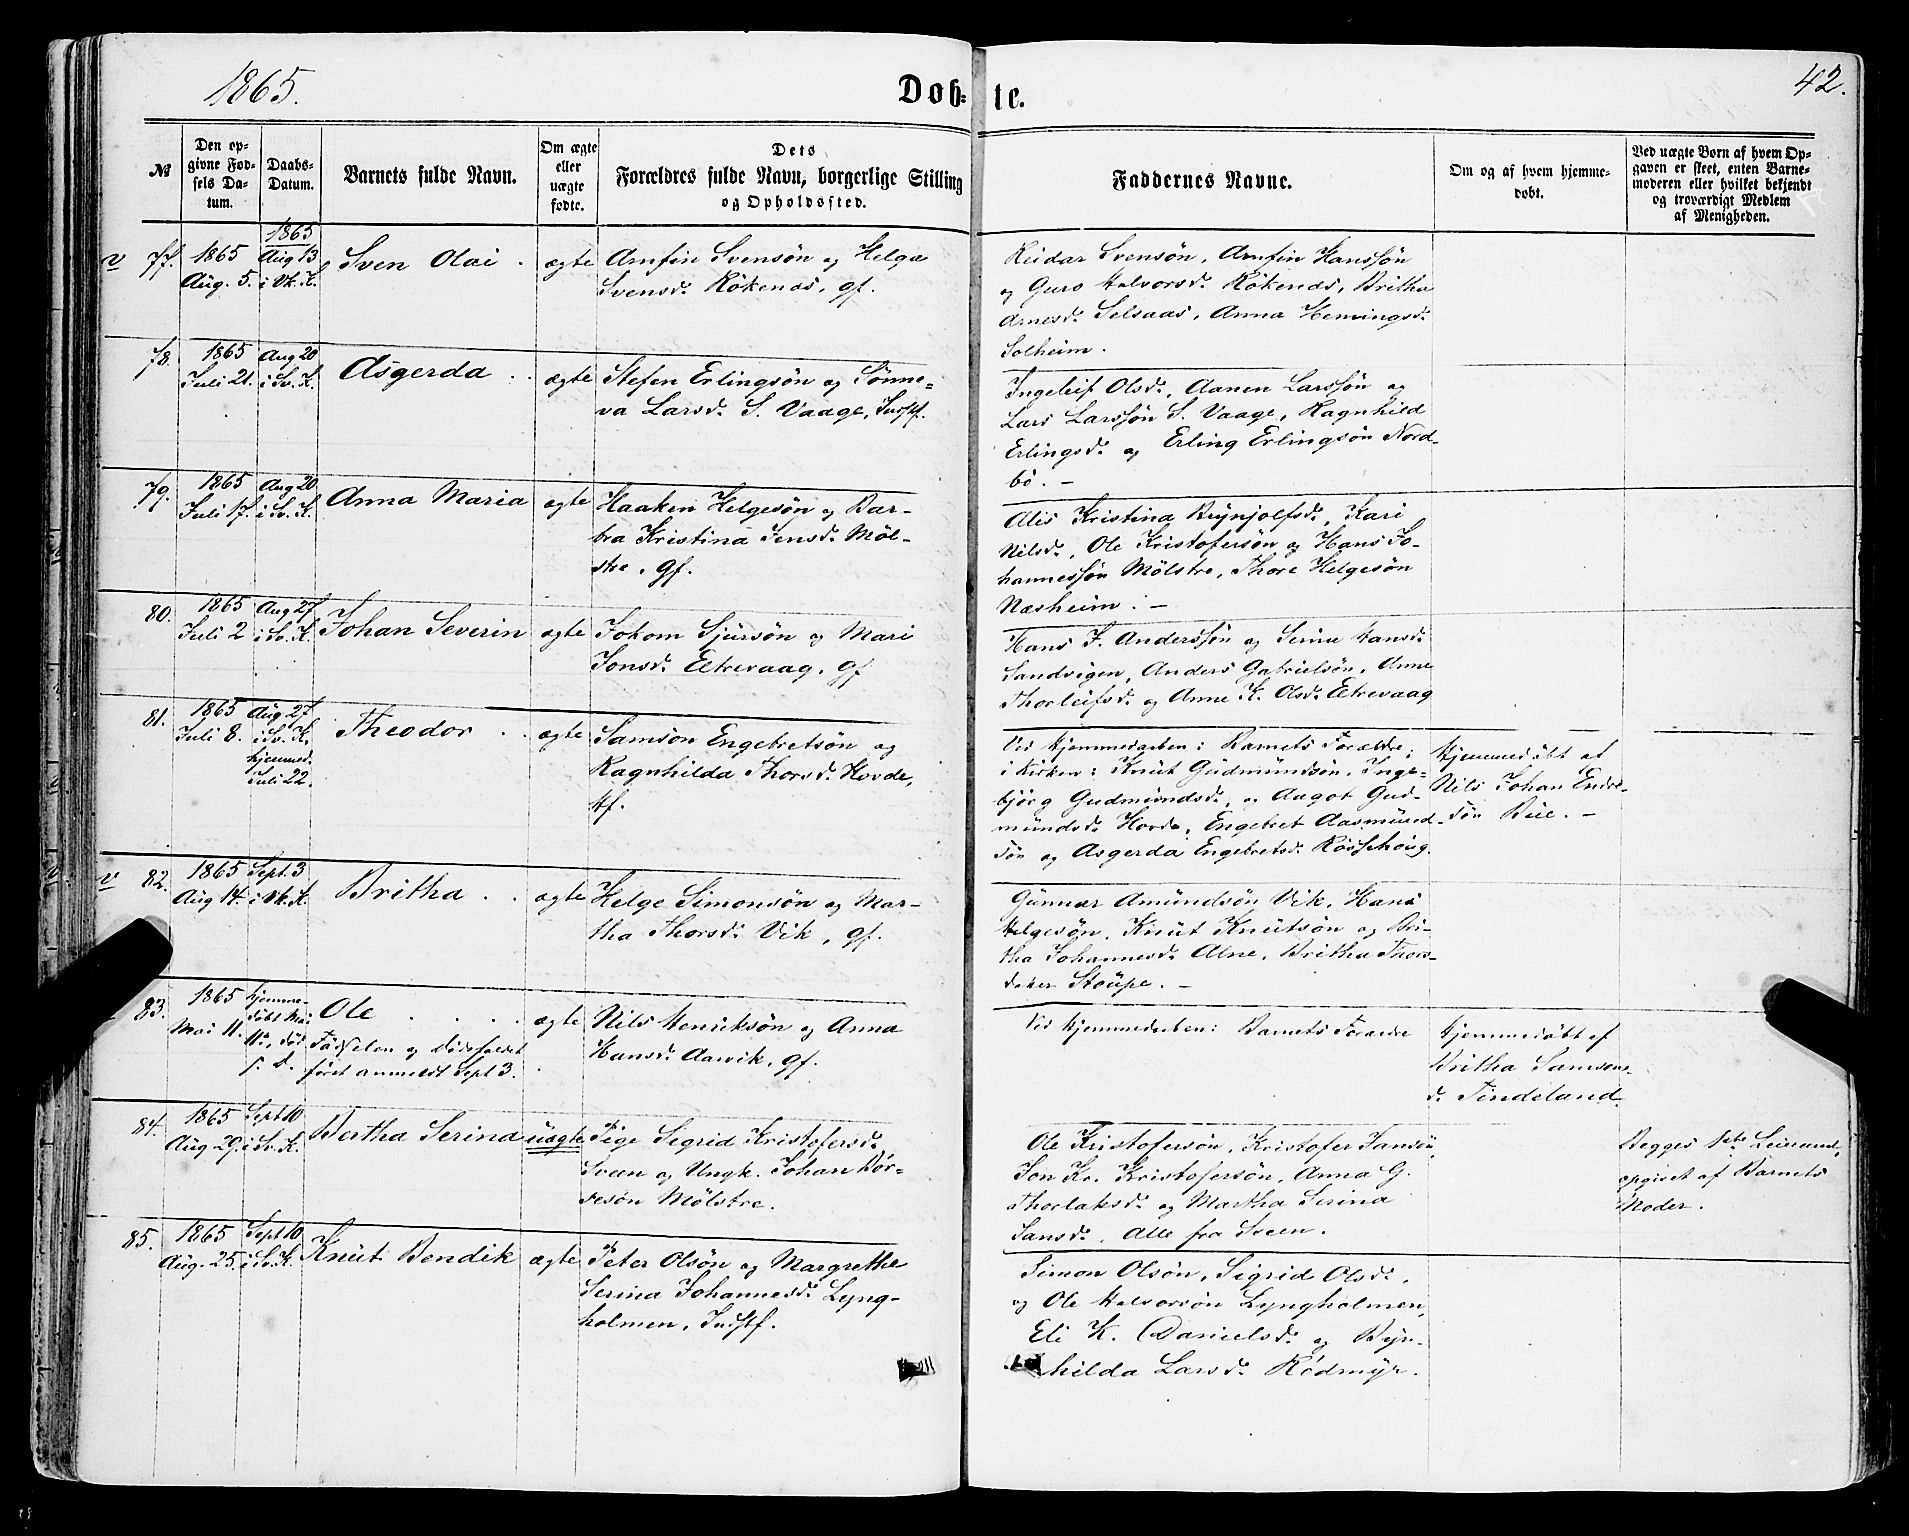 1865.
Døb-
te.
42.
№
Den op-
givne Fød-
sels Da-
tum.
Daabs-
Datum.
Barnets fulde Navn.
Om ægte
eller
uægte
fødte.
Dets
Forældres fulde Navn, borgerlige Stilling
og Opholdssted.
Faddernes Navne.
Om og af hvem hjemme-
døbt.
Ved uægte Børn af hvem Op-
gaven er skeet, enten Barne-
moderen eller hvilket bekjendt
og troværdigt Medlem
af Menigheden.
v 77.
1865
Aug. 5.
1865
Aug 13
i Vk. K.
Sven Olai .
ægte
Arnfin Svensøn og Helga
Svensd. Rökenæs, gf.
Reidar Svensøn, Arnfin Hanssøn
og Guro Halvorsd. Rökenæs, Britha
Arnesd. Selsaas, Anna Hemingsd.
Solheim.
78.
1865
Juli 21.
Aug 20
i Sv. K.
Asgerda . .
ægte
Stefen Erlingsøn og Sönne-
va Larsd. S. Vaage, Indstf.
Ingeleif Olsd., Aanen Larssøn og
Lars Larssøn S. Vaage, Ragnhild
Erlingsd. og Erling Erlingsøn Nord-
bö. -
79.
1865
Juli 17.
Aug 20
i Sv. K.
Anna Maria
ægte
Haaken Helgesøn og Bar-
bra Kristina Jensd. Möl-
stre, gf.
Alis Kristina Brynjolfsd., Kari
Nilsd., Ole Kristofersøn og Hans Jo-
hannessøn Mölstre, Thore Helgesøn
Næsheim. -
80.
1865
Juli 2
Aug 27
i Sv. K.
Johan Severin
ægte
Jokom Sjursøn og Mari
Jonsd. Eltrevaag, gf
Hans J. Anderssøn og Serina Hansd.
Sandvigen, Anders Gabrielsøn, Anne
Thorleifsd. og Anne K. Olsd. Eltrevaag
81.
1865
Juli 8.
Aug. 27
i Sv. K.
hjemmed.
Juli 22.
Theodor . .
ægte
Samson Engebretsøn og
Ragnhilda Thorsd. Hovda,
Hf.
Ved Hjemmedaaben: Barnets Forældre;
i Kirken: Knut Gudmundsøn, Inge-
björg Gudmundsd., og Aagot Gud-
mundsd. Hovda, Engebret Aasmund-
søn og Asgerda Engebretsd. Rossehoug.
Hjemmedöbt af
Nils Johan Endre-
søn Bue. -
v 82.
1865
Aug 14.
Sept. 3
i Vk. K.
Britha . .
ægte
Helge Simonsøn og Mar-
tha Thorsd. Vik, gf.
Gunnar Amundsøn Vik, Hans
Helgesøn, Knut Knutsøn og Bri-
tha Johannesd. Alne, Britha Thors-
datter Stoupe. -
83.
1865
Mai 11.
hjemme-
döbt Mai
11te, död
s. D.
Ole . . . .
Födselen og Dödsfaldet
först anmeldt Sept 3.
ægte
Nils Henriksøn og Anna
Hansd. Aarvik, gf.
Ved Hjemmedaaben: Barnets Forældre
Hjemmedöbt af
Britha Samsons-
d. Tindeland.
84.
1865
Aug 29.
Sept 10
i Sv. K.
Bertha Serina
uægte
Pige Sigrid Kristofersd.
Sveen og Ungk. Johan Bör-
resøn Mölstre.
Ole Kristofersøn, Kristofer Jansøn,
Jon Kr. Kristofersøn, Anna G.
Thorlaksd. og Martha Serina
Jansd., Alle fra Sveen.
Begges 1ste Leiermaal,
opgivet af Barnets
Moder.
85.
1865
Aug. 25.
Sept 10
i Sv. K.
Knut Bendik
ægte
Peter Olsøn og Margrethe
Serina Johannesd. Lyng-
holmen, Indstf.
Simon Olsøn, Sigrid Olsd.,
og Ole Halvorsøn Lyngholmen,
Eli K. Danielsd. og Byn-
hilda Larsd. Rödmyr.